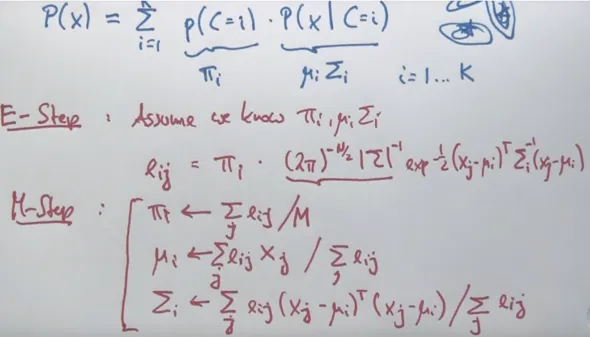 P(x) = Σ_{i=1}^{K} p(C=i) · P(x|C=i)
π_i μ_i Σ_i i=1...K
E-Step : Assume we know π_i, μ_i, Σ_i
e_{ij} = π_i · (2π)^{-N/2} |Σ|^{-1} exp -1/2 (x_j-μ_i)^T Σ_i^{-1} (x_j-μ_i)
M-Step : π_i ← Σ_j e_{ij} / M
μ_i ← Σ_j e_{ij} x_j / Σ_j e_{ij}
Σ_i ← Σ_j e_{ij} (x_j - μ_i)^T (x_j - μ_i) / Σ_j e_{ij}